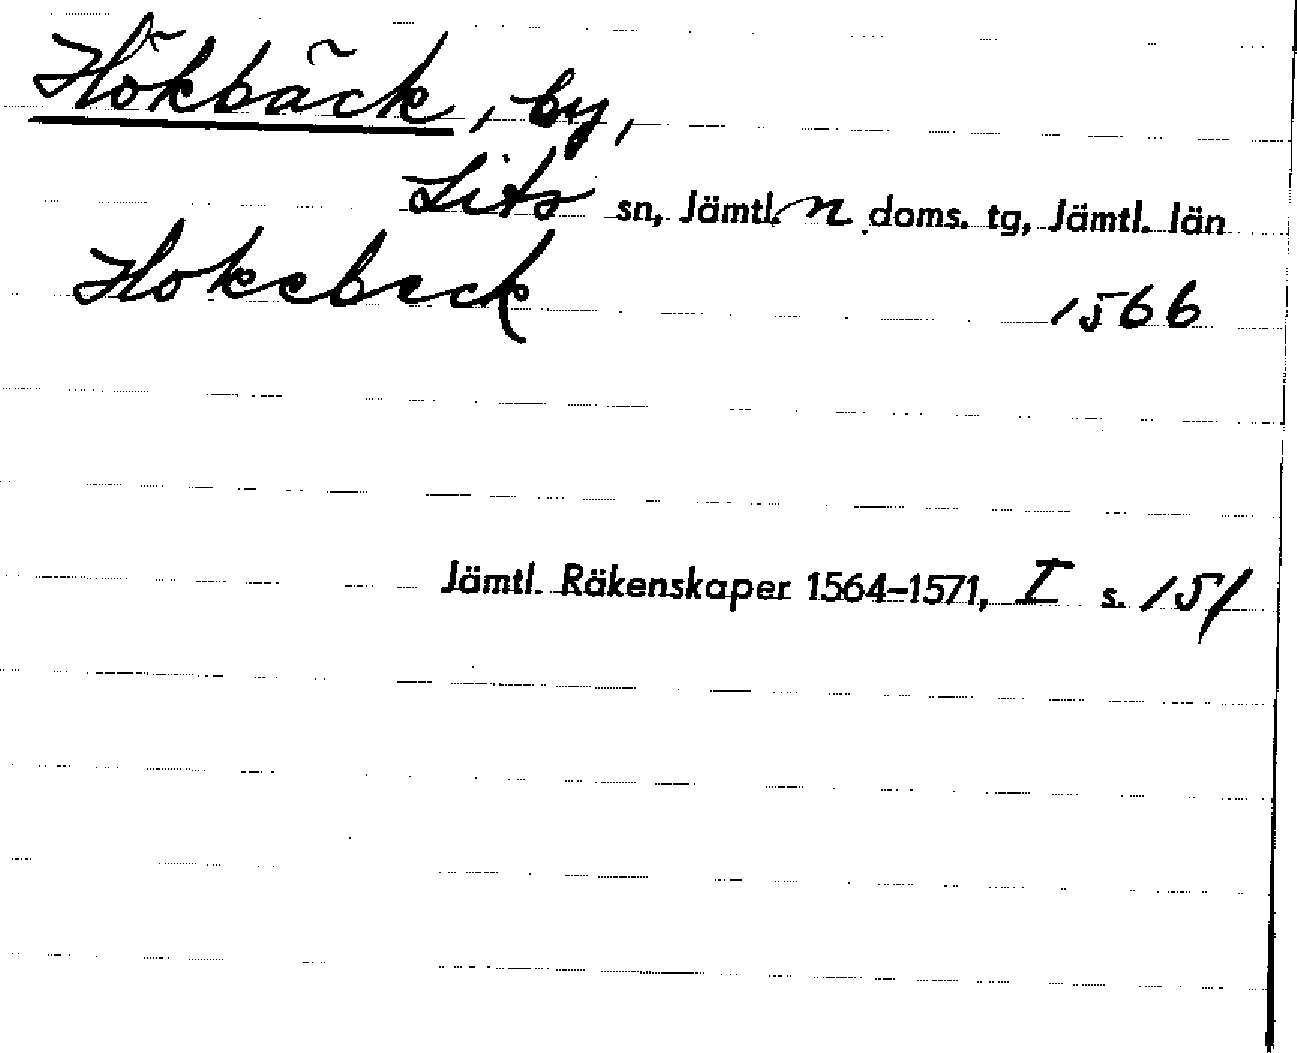 Hökbäck, by,
Lits sn, Jämtl. n doms. tg, Jämtl. län
Hokebeck 1566
Jämtl. Räkenskaper 1564-1571, I s. 151